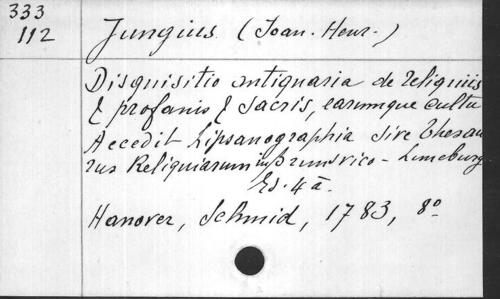 333
112
Jungius (Joan. Henr.)
Disquisitio antiquaria de Reliquiis
& profanis & sacris, earumque cultu
Accedit Lipsanographia sive Thesau
rus Reliquiarum Brunsvico-Luneburg
Ed. 4ā.
Hanover, Schmid, 1783, 8º